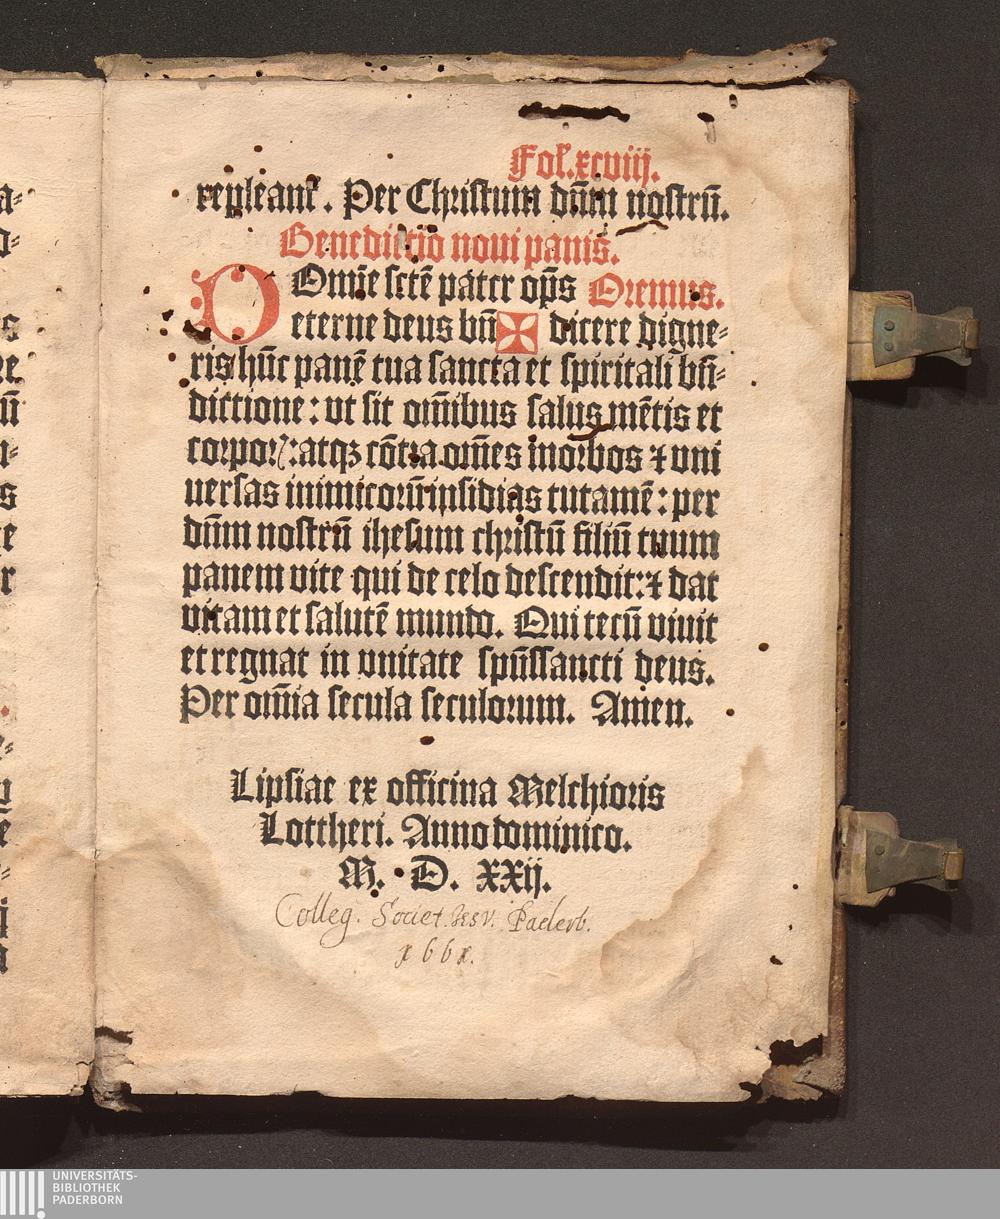 Fol. xcviij.
repleant᷑. Per Christum dn̄m nostrū.
Benedictio noui panis.
O Omīe sctē pater op̄s Oremus.
eterne deus bn̄ ✠ dicere digne⸗
ris hūc panē tua sancta et spiritali bn̄⸗
dictione: vt sit om̄ibus salus mētis et
corporꝭ: atqꝫ cōtra om̄es morbos ⁊ vni
uersas inimicorū insidias tutamē: per
dn̄m nostrū ihesum christū filiū tuum
panem vite qui de celo descendit: ⁊ dat
vitam et salutē mundo. Qui tecū viuit
et regnat in vnitate spūssancti deus.
Per om̄ia secula seculorum. Amen.
Lipsiae ex officina Melchioris
Lottheri. Anno dominico.
M. D. XXij.
Colleg. Societ. Jesv. Paderb.
1661.
UNIVERSITÄTS-
BIBLIOTHEK
PADERBORN